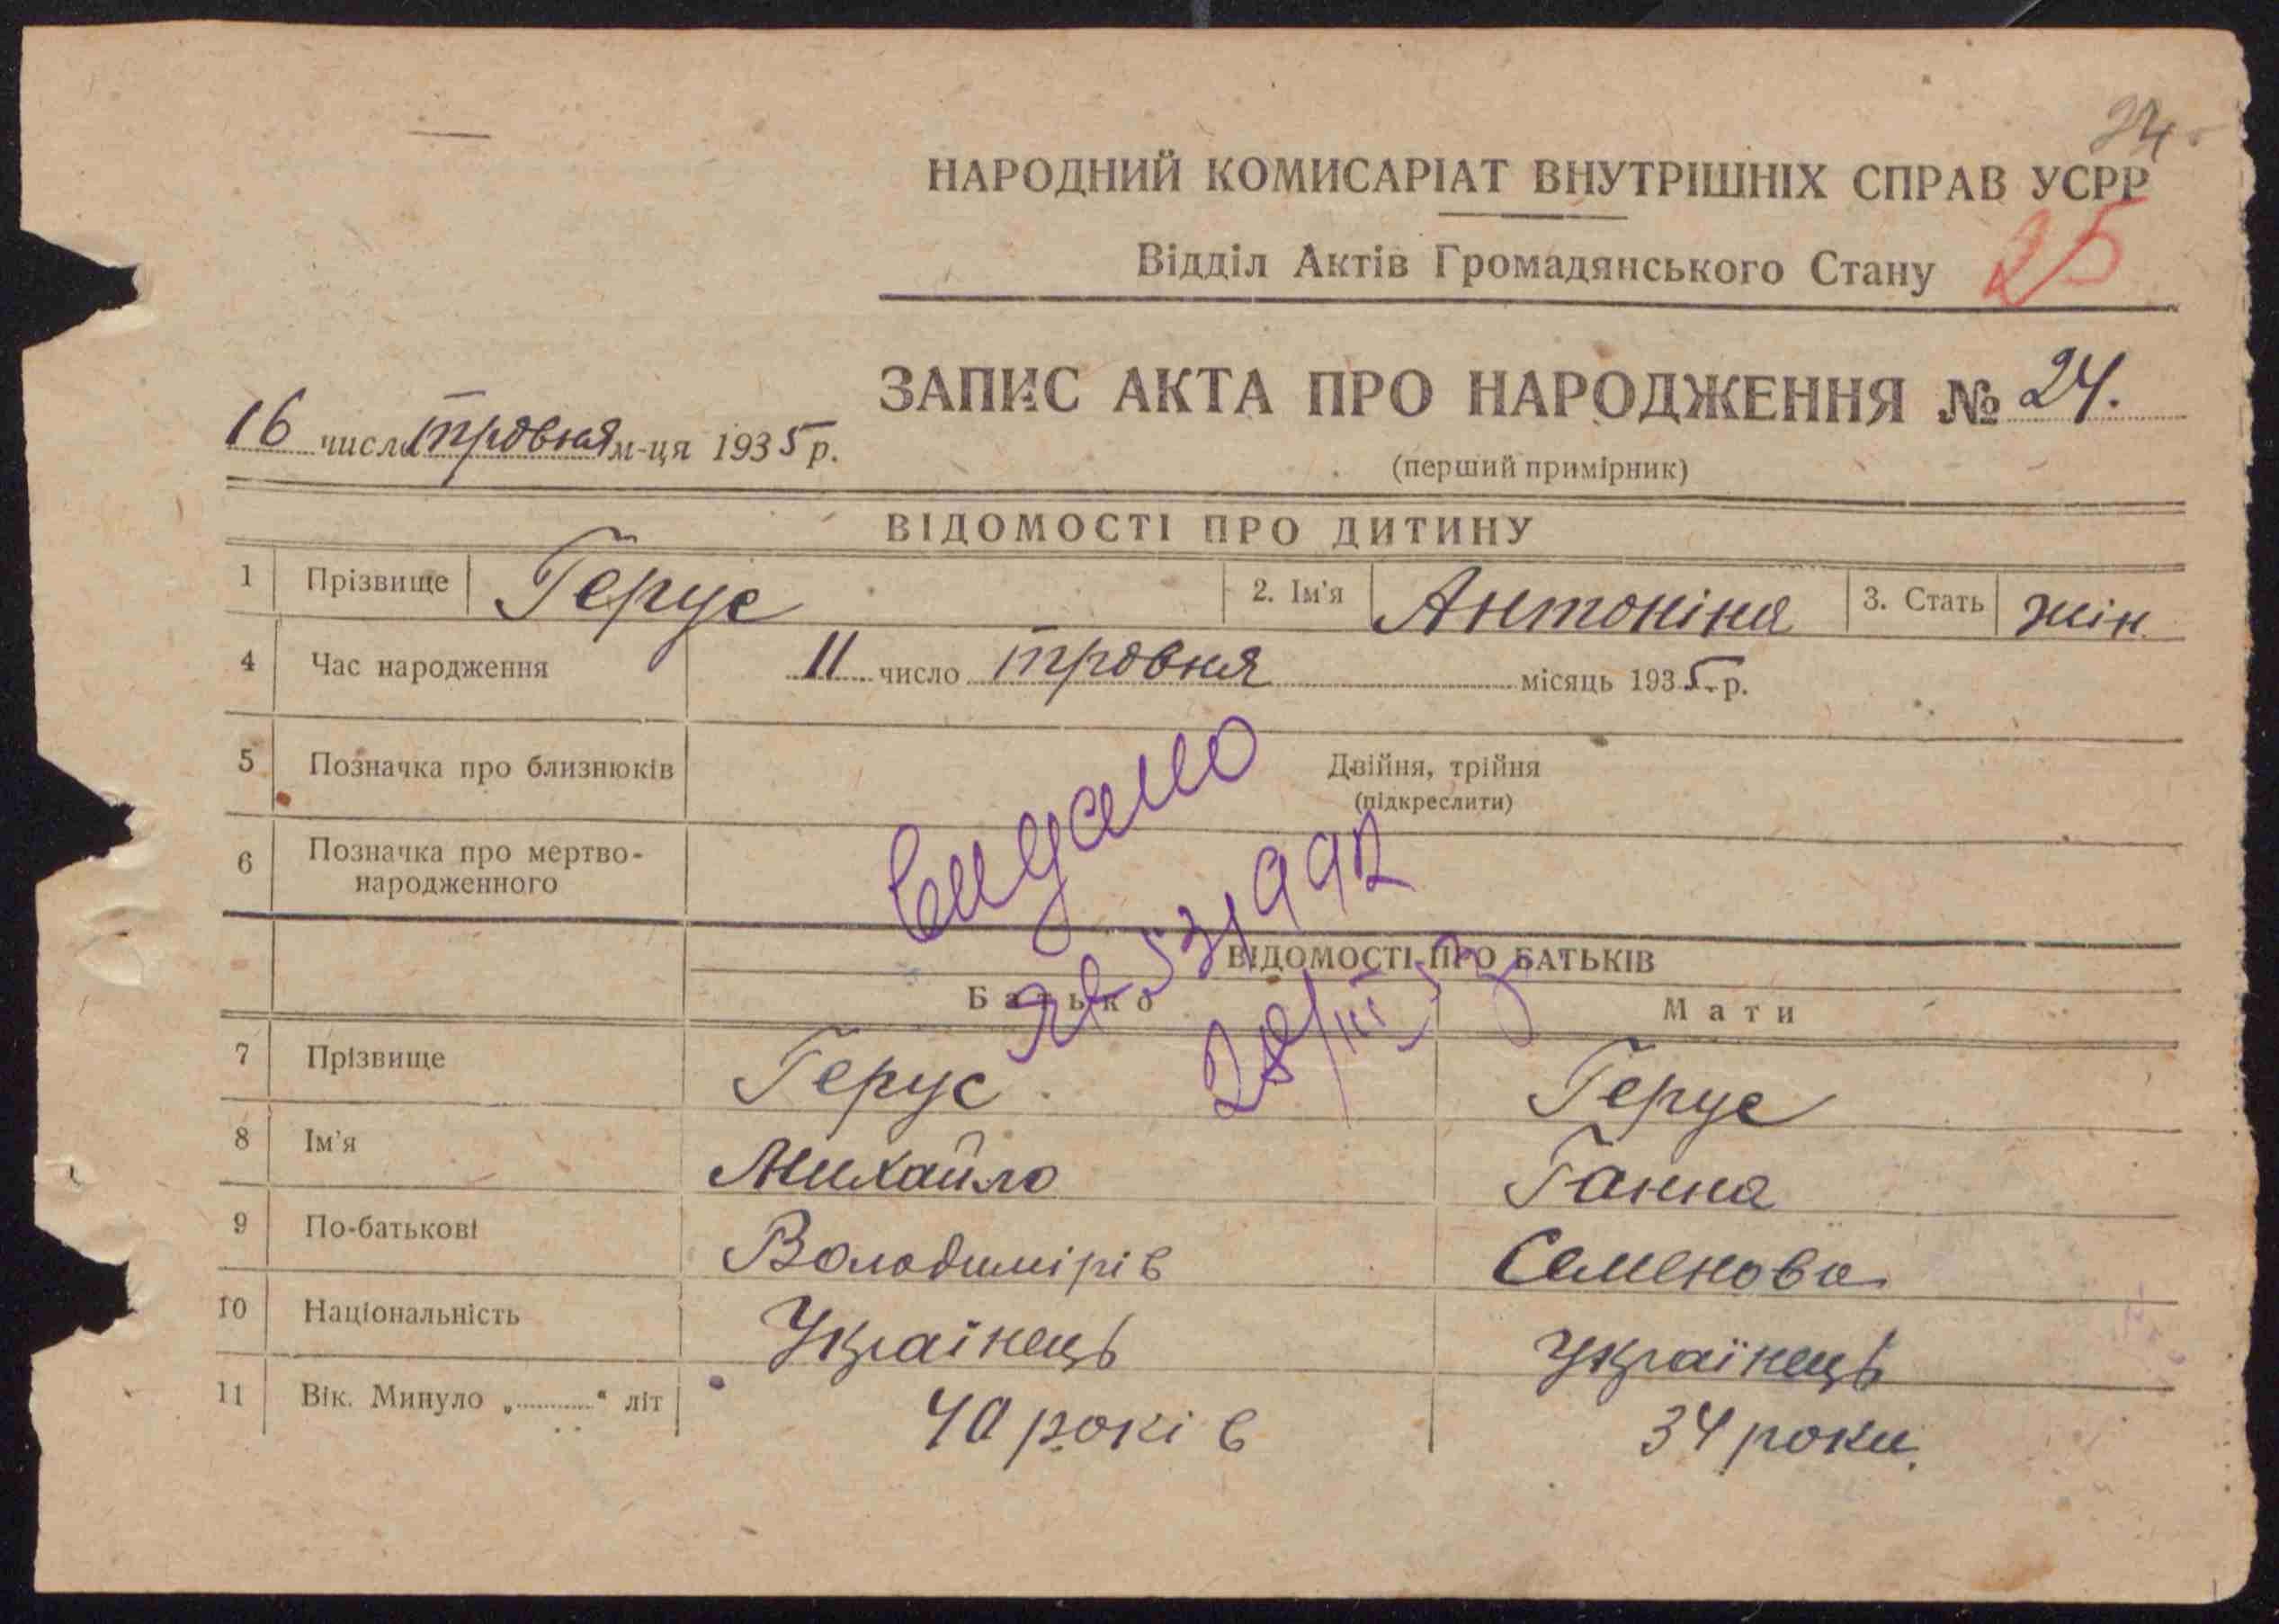 24
НАРОДНИЙ КОМИСАРІАТ ВНУТРІШНІХ СПРАВ УСРР
25
Відділ Актів Громадянського Стану
ЗАПИС АКТА ПРО НАРОДЖЕННЯ № 24.
16 числа травня м-ця 1935 р.
(перший примірник)
ВІДОМОСТІ ПРО ДИТИНУ
1 Прізвище Герус 2. Ім'я Антоніна 3. Стать жін
4 Час народження 11 число травня місяць 1935 р.
5 Позначка про близнюків Двійня, трійня
(підкреслити)
6 Позначка про мертво-
народженного
видано
531992
ВІДОМОСТІ ПРО БАТЬКІВ
Батько Мати
28/III
7 Прізвище Герус Герус
8 Ім'я Михайло Ганна
9 По-батькові Володимірів Семенова
10 Національність Українець Українець
11 Вік. Минуло „..........“ літ 40 років 34 роки.